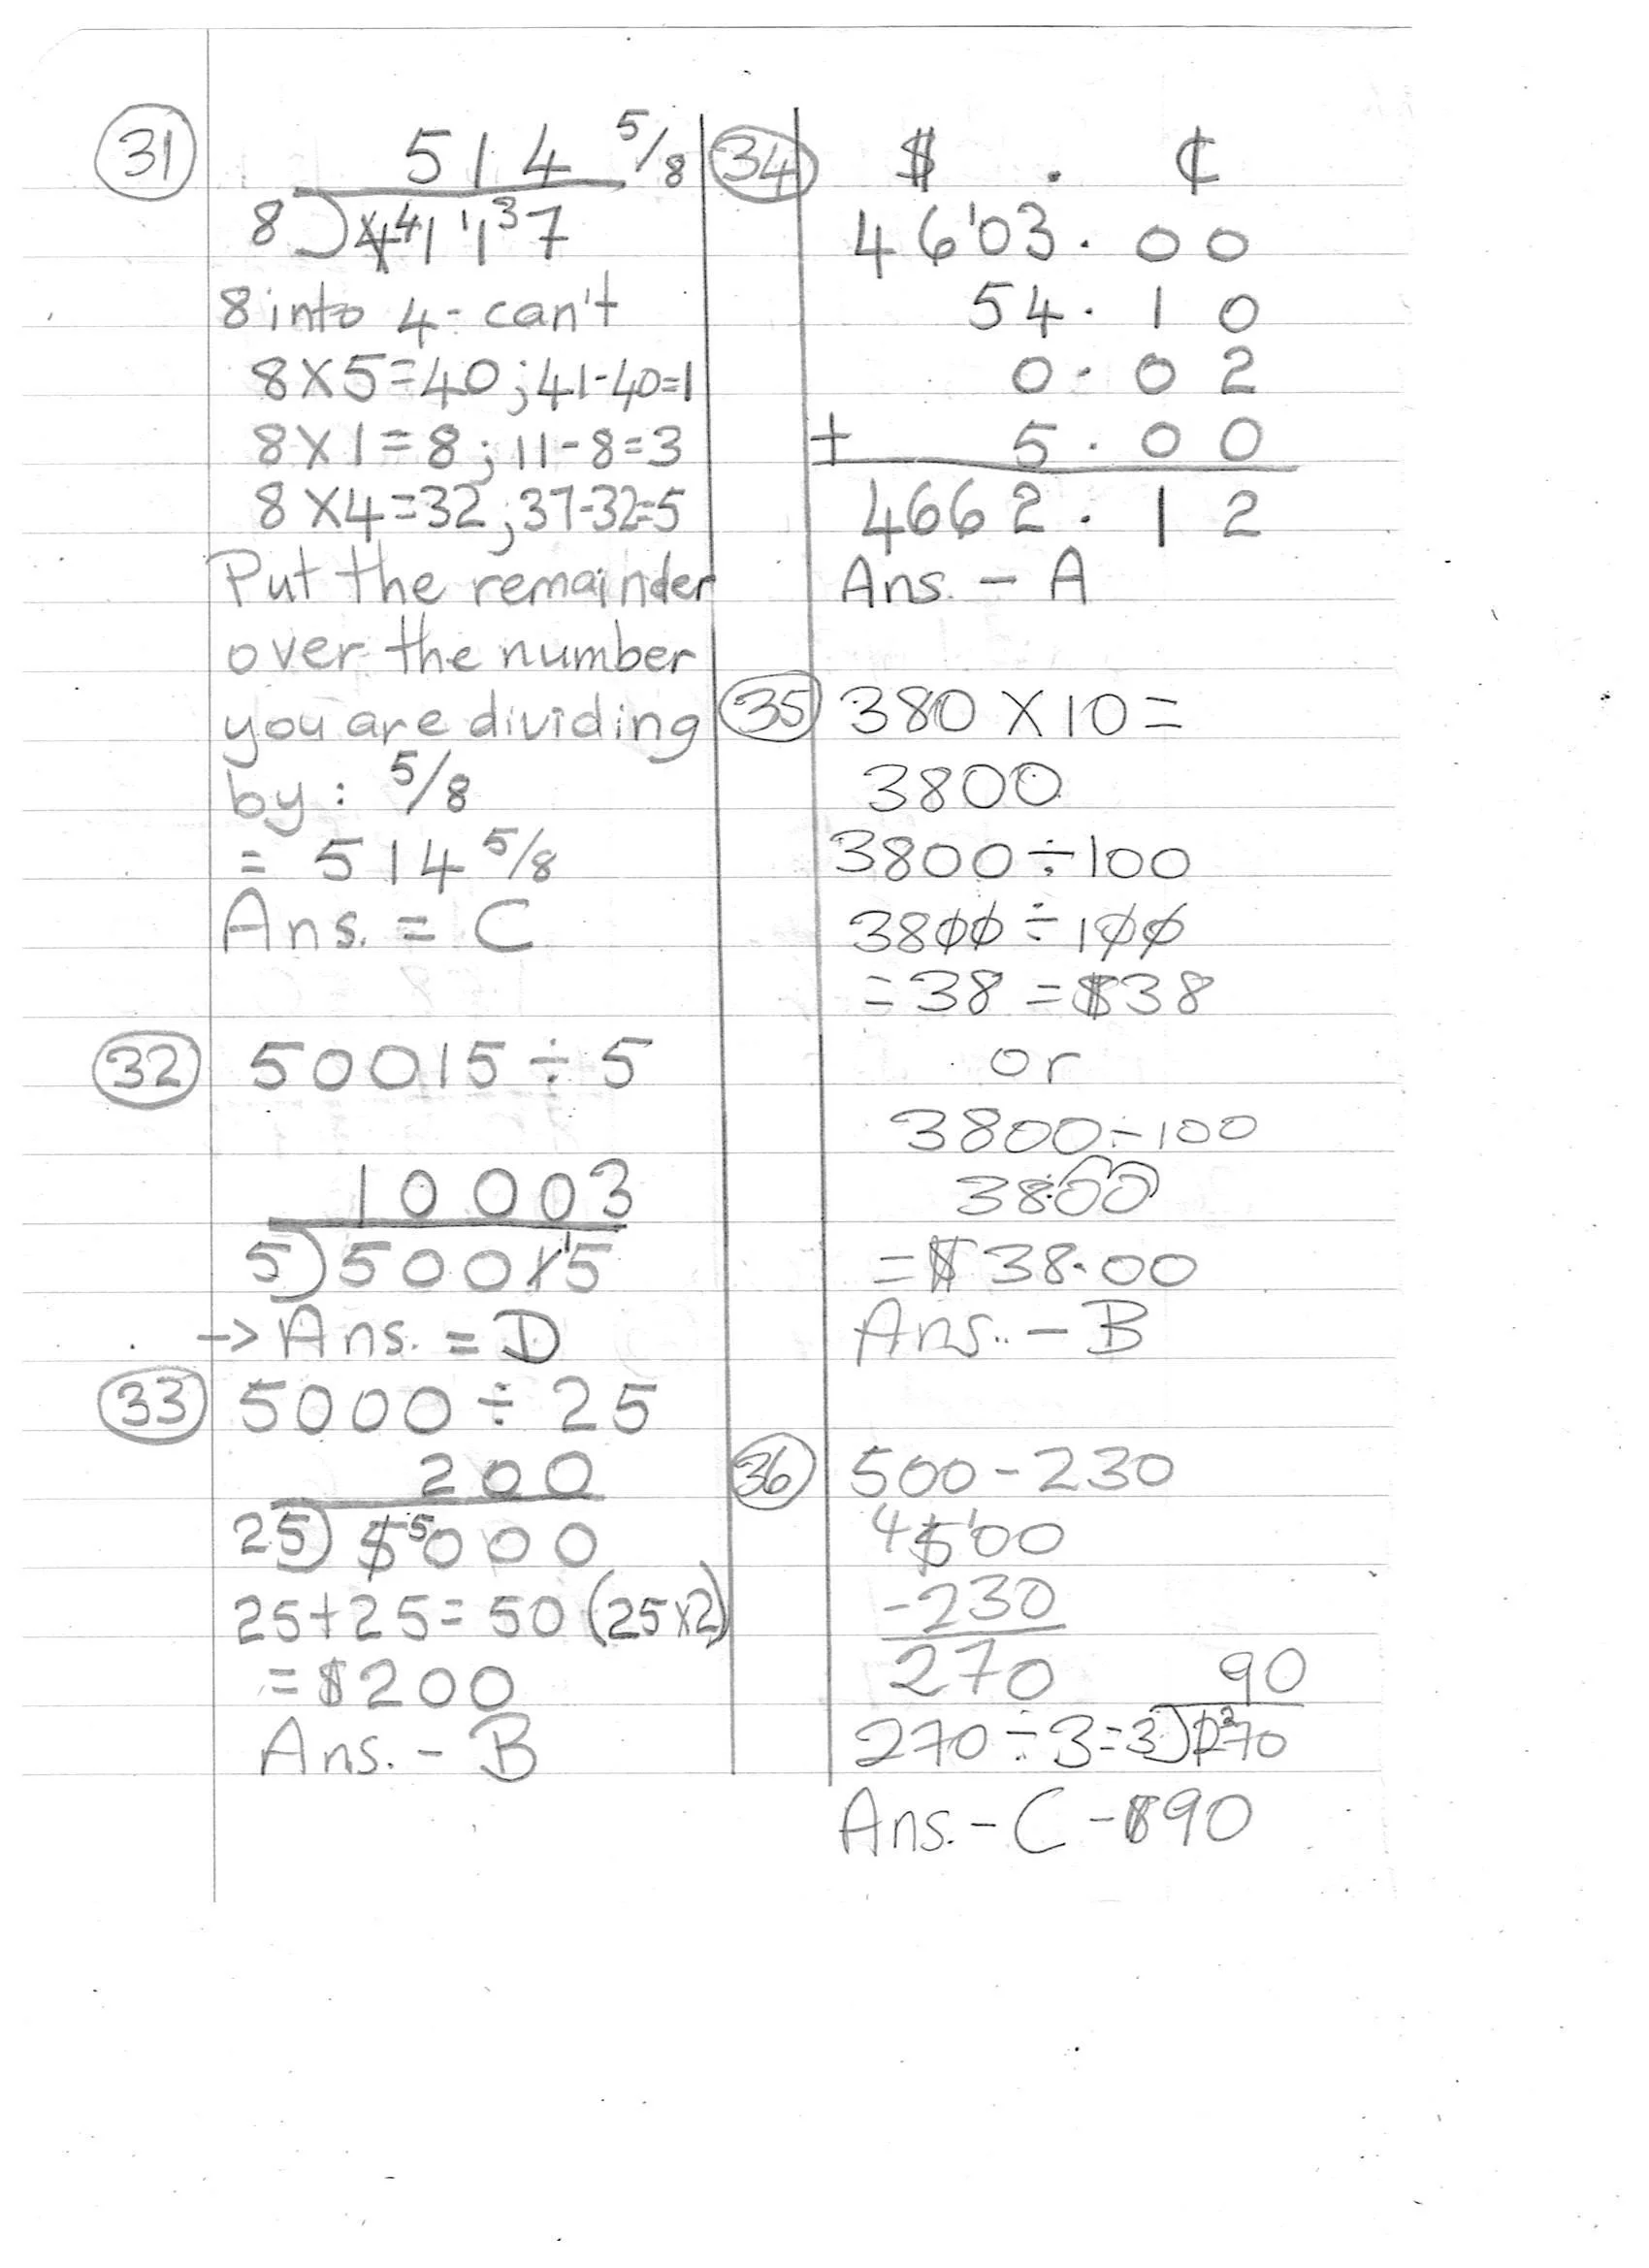 31
514 5/8
8)4 41 11 37
8 into 4 - can't
8X5=40; 41-40=1
8X1=8; 11-8=3
8X4=32; 37-32=5
Put the remainder
over the number
you are dividing
by: 5/8
= 514 5/8
Ans. = C
32 50015 ÷ 5
10003
5)5001 15
→ Ans. = D
33 5000 ÷ 25
200
25)5 50 0 0
25+25=50 (25x2)
= $200
Ans. - B
34 $ . ¢
46 1 03.00
54.10
0.02
+ 5.00
4662.12
Ans. - A
35 380 X 10 =
3800
3800÷100
3800÷100
= 38 = $38
or
3800÷100
38.00
= $38.00
Ans.. - B
36 500-230
4 5 1 00
-230
270
90
270÷3=3)2 2 70
Ans. - C - $90